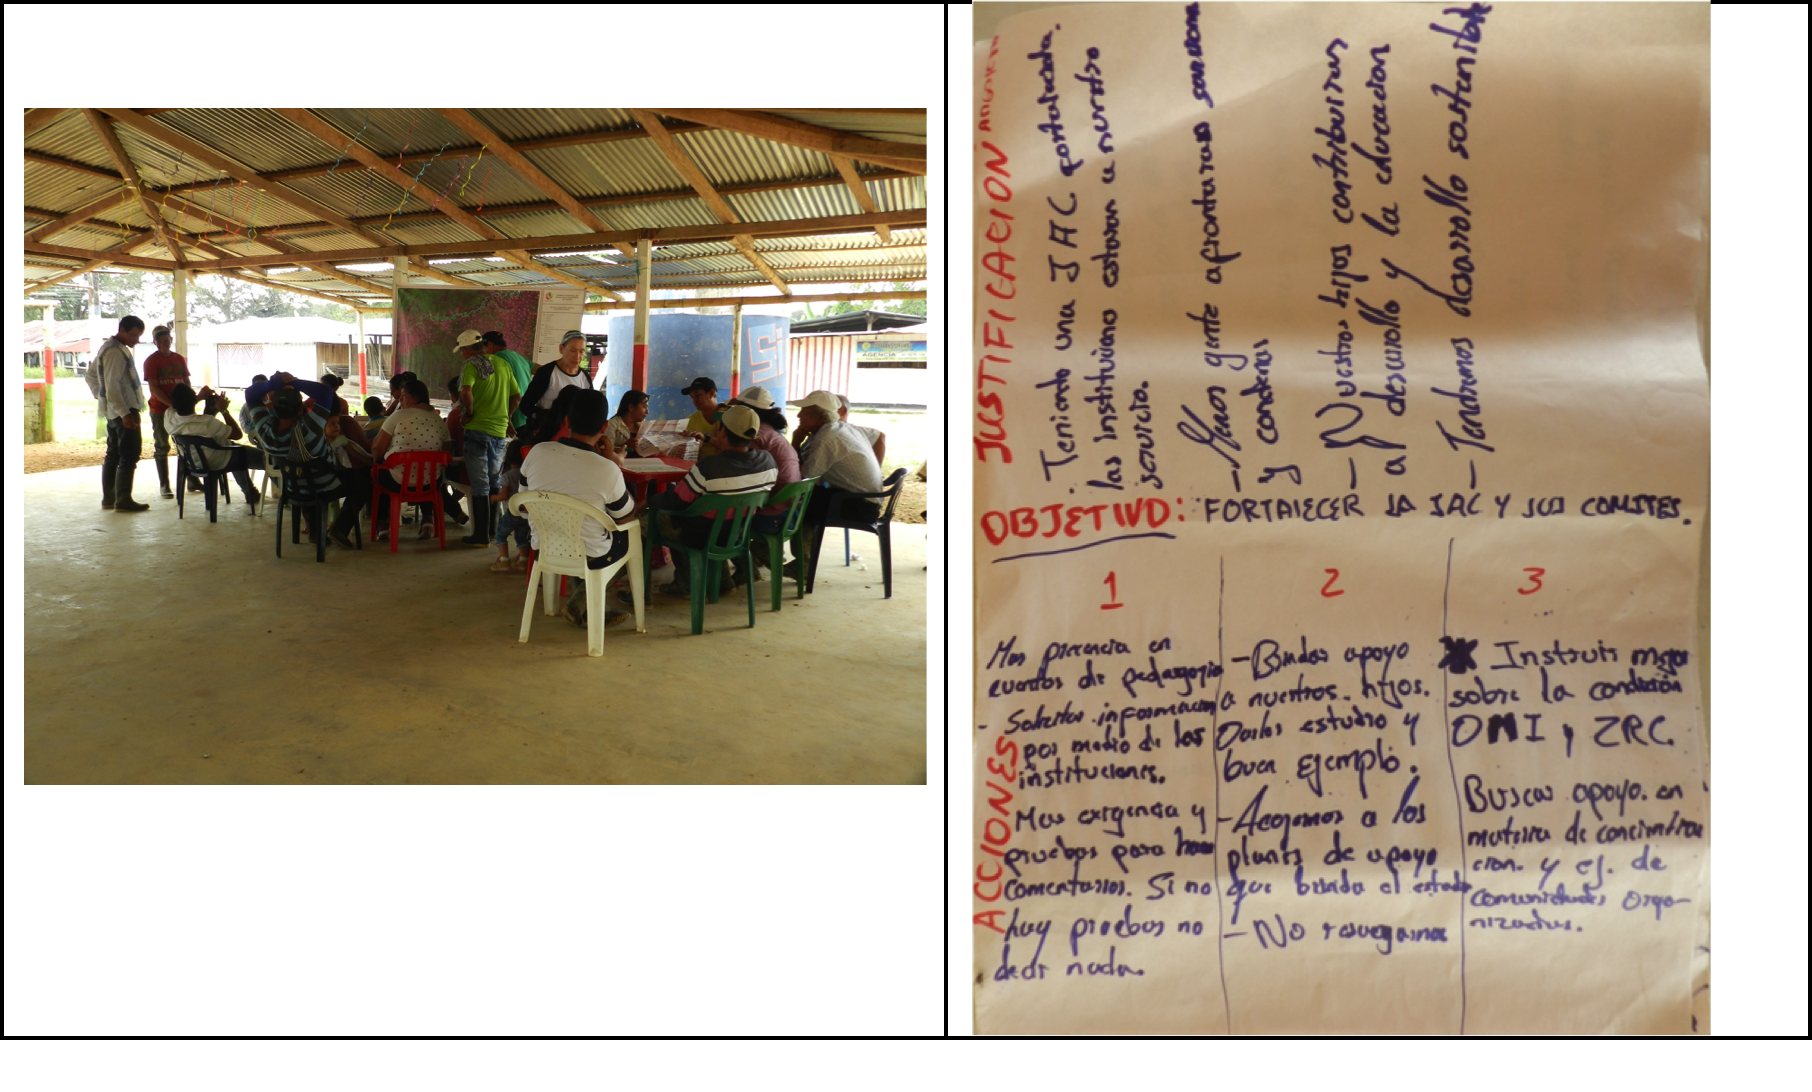 AGENCIA
JUSTIFICACION
. Teniendo una JAC fortalecida.
las instituciones estaran a nuestro
servicio.
- Menos gente afrontaran
y condenas
- Nuestros hijos contribuiran
al desarrollo y la educacion
- Tendremos desarrollo sostenible
OBJETIVO: FORTALECER LA JAC Y SUS COMITES.
1
2
3
ACCIONES
Mas presencia en
cuentos de pedagogia
- Solicitar informacion
por medio de las
instituciones.
Mas exigencia y
pruebas para
comentarios. Si no
hay pruebas no
decir nada.
- Brindar apoyo
a nuestros hijos.
Darles estudio y
buen ejemplo.
- Acojamos a los
planes de apoyo
que brinda el estado
- No
Instruir mejor
sobre la condición
OMI y ZRC.
Buscar apoyo. en
materia de concientiza
cion. y ej. de
comunidades orga-
nizadas.